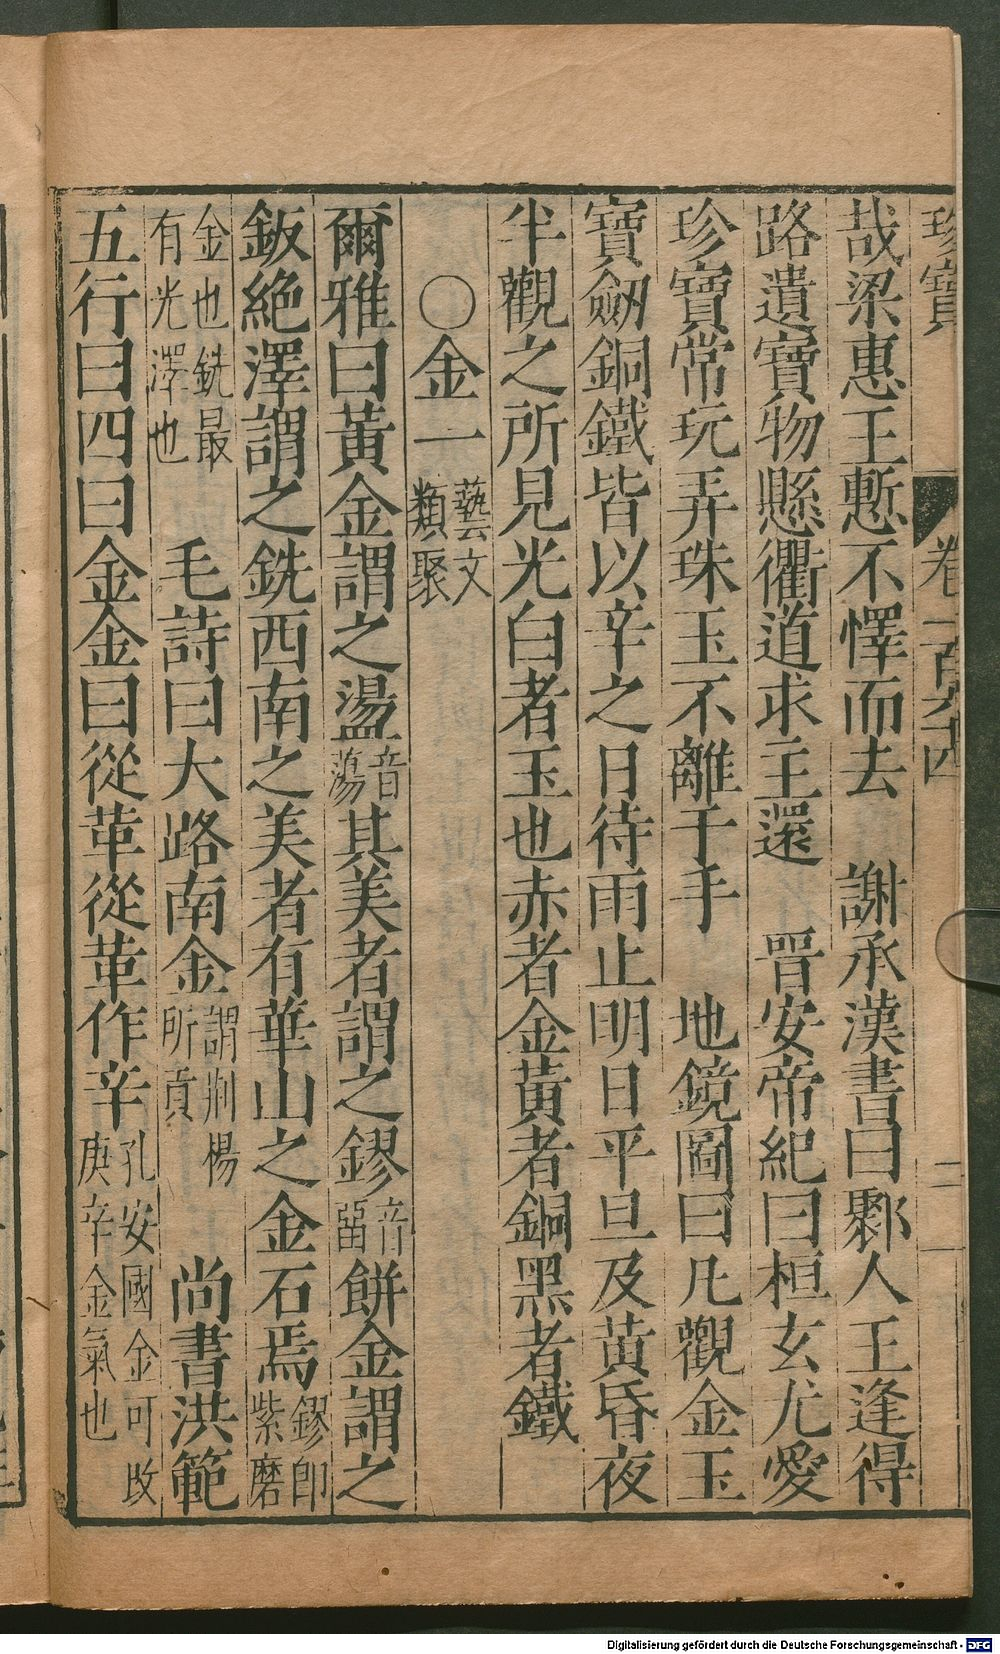 珍寶 卷一百六十四 二
哉梁惠王慙不懌而去 謝承漢書曰鄹人王逢得
路遺寶物懸衢道求主還 晉安帝紀曰桓玄尤愛
珍寶常玩弄珠玉不離于手 地鏡圖曰凡觀金玉
寶劒銅鐵皆以辛之日待雨止明日平旦及黃昏夜
半觀之所見光白者玉也赤者金黃者銅黑者鐵
〇金一 藝文類聚
爾雅曰黃金謂之璗音蕩其美者謂之鏐音留餅金謂之
鈑絶澤謂之銑西南之美者有華山之金石焉鏐卽紫磨
金也銑最有光澤也 毛詩曰大路南金謂荆楊所貢 尚書洪範
五行曰四曰金金曰從革從革作辛孔安國金可改庚辛金氣也
Digitalisierung gefördert durch die Deutsche Forschungsgemeinschaft - DFG